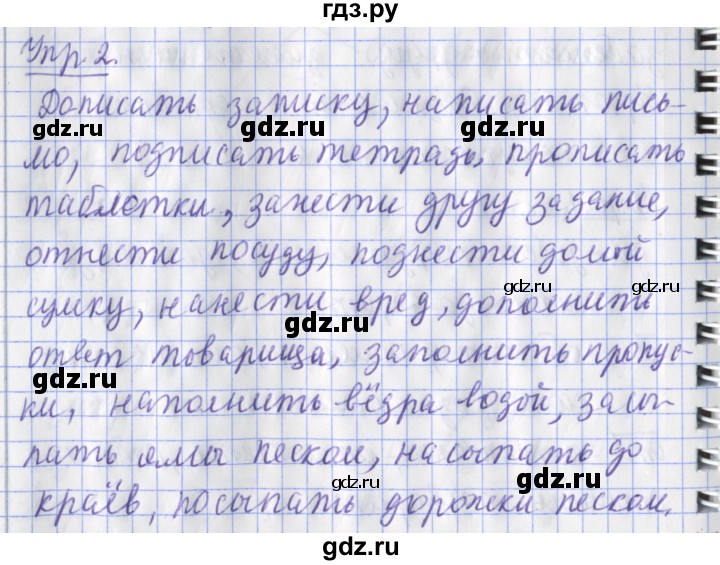 гдз.ру
Упр. 2.
Дописать записку, написать пись-
gdz.ru gdz.ru gdz.ru
мо, подписать тетрадь, прописать
таблетки, занести другу задание,
gdz.ru gdz.ru
отнести посуду, поднести домой
сумку, нанести вред, дополнить
gdz.ru gdz.ru
ответ товарища, заполнить пропус-
gdz.ru gdz.ru
ки, наполнить вёдра водой, засы-
пать ямы песком, насыпать до
gdz.ru gdz.ru
краёв, посыпать дорожки песком.
gdz.ru